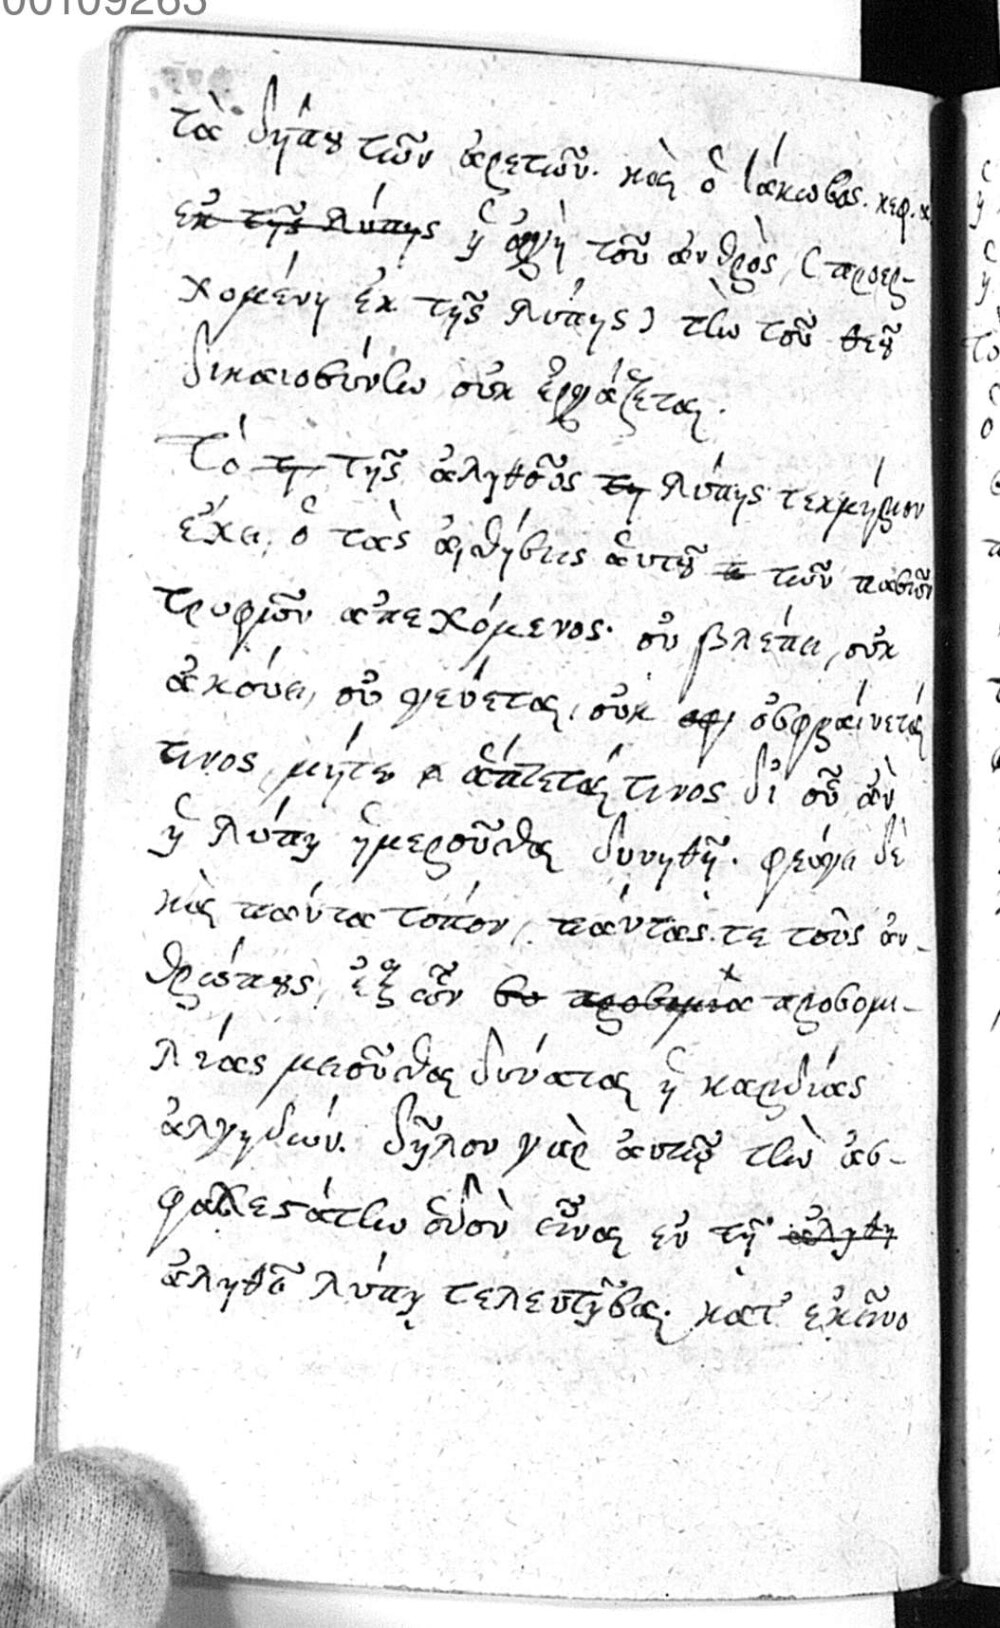 00109263
τὰ δήπου τῶν ἀρετῶν. καὶ ὁ Ἰάκωβος. κεφ. α
ἐκ τῆς λύπης ἡ ὀργὴ τοῦ ἀνδρὸς, (προερ-
χομένη ἐκ τῆς λύπης) τὴν τοῦ θεοῦ
δικαιοσύνην οὐκ ἐργάζεται.
Τὸ τη τῆς ἀληθοῦς τη λύπης τεκμήριον
ἔχει, ὁ τὰς αἰσθήσεις ἁυτοῦ τῶν πασῶν
τρυφῶν ἀπεχόμενος. οὐ βλέπει, οὐκ
ἀκούει, οὐ γεύεται, οὐκ οσφ ὀσφραίνεταί
τινος, μήτε ἅπτεταί τινος δι' οὗ ἂν
ἡ λύπη ἡμεροῦσθαι δυνηθῇ. φεύγει δὲ
καὶ πάντα τόπον, πάντας τε τοὺς ἀν-
θρώπους, ἐξ ὧν προσομι-
λίας μειοῦσθαι δύναται ἡ καρδίας
ἀλγηδών. δῆλον γὰρ ἀυτῷ τὴν ἀσ-
φαλεστάτην ὁδὸν εἶναι ἐν τῇ ἀληθη
ἀληθεῖ λύπῃ τελευτῆσαι. κατ' ἐκεῖνο